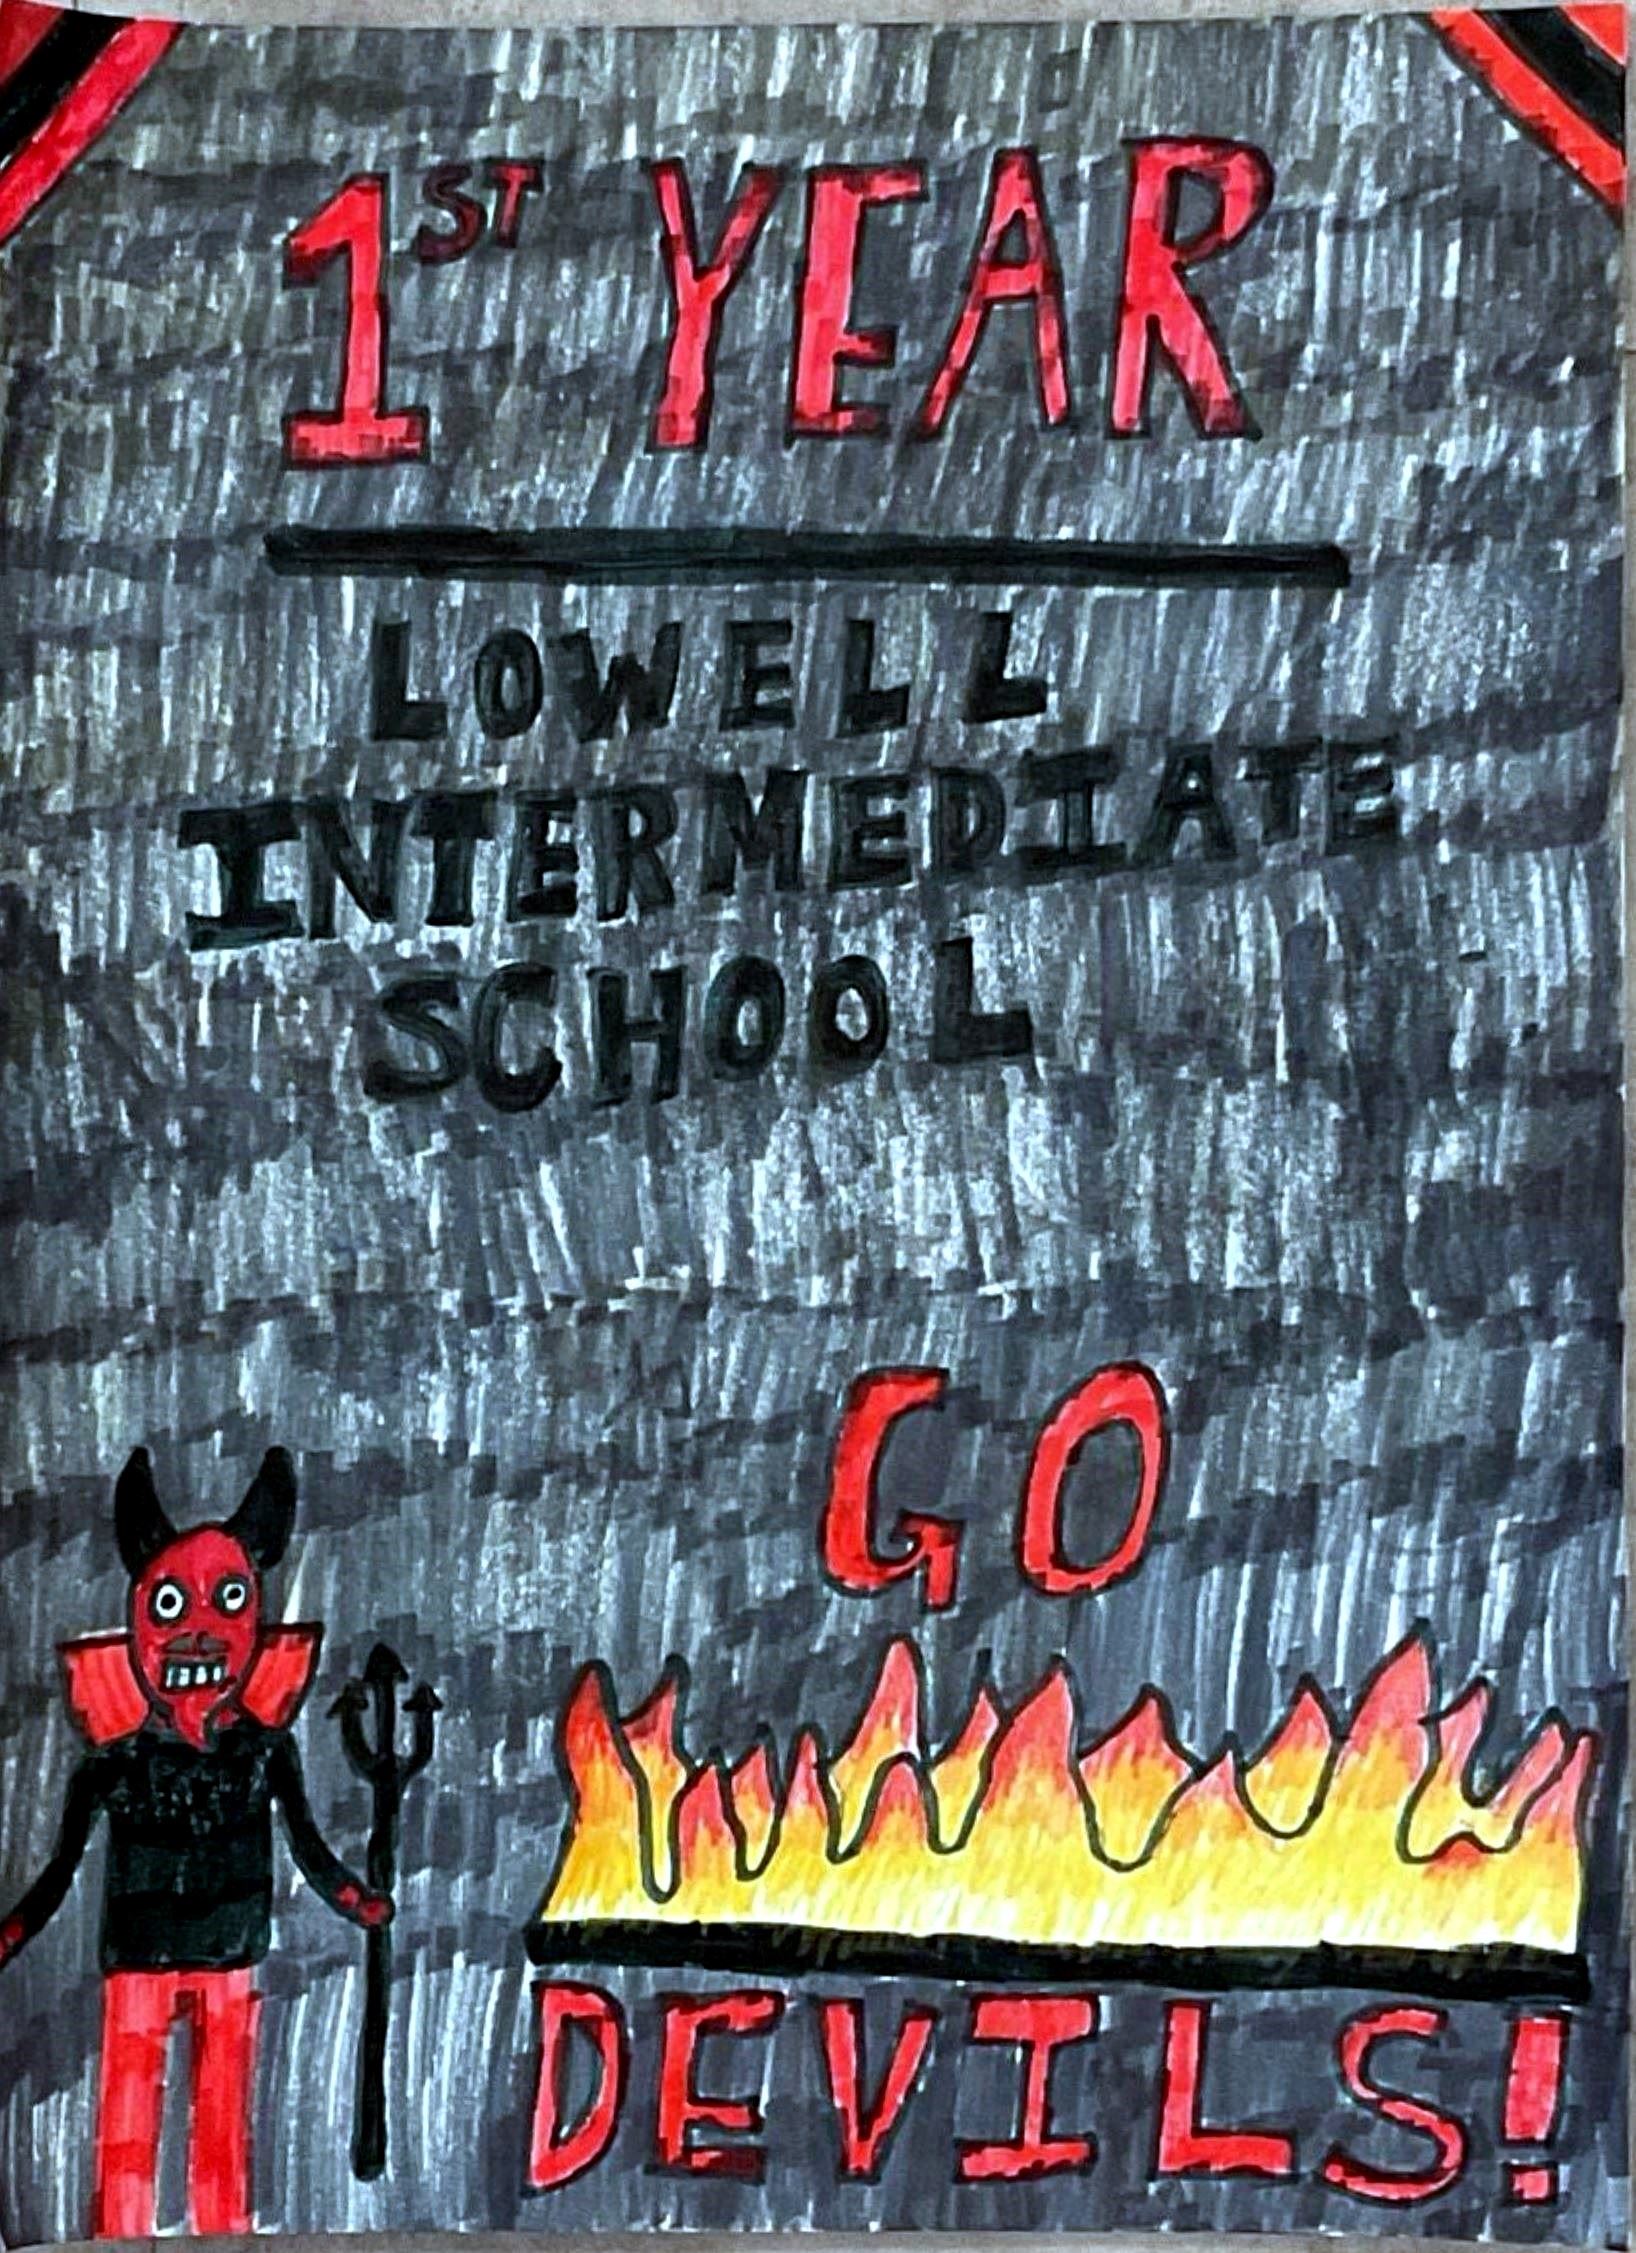 1ST YEAR
LOWELL
INTERMEDIATE
SCHOOL
GO
DEVILS!